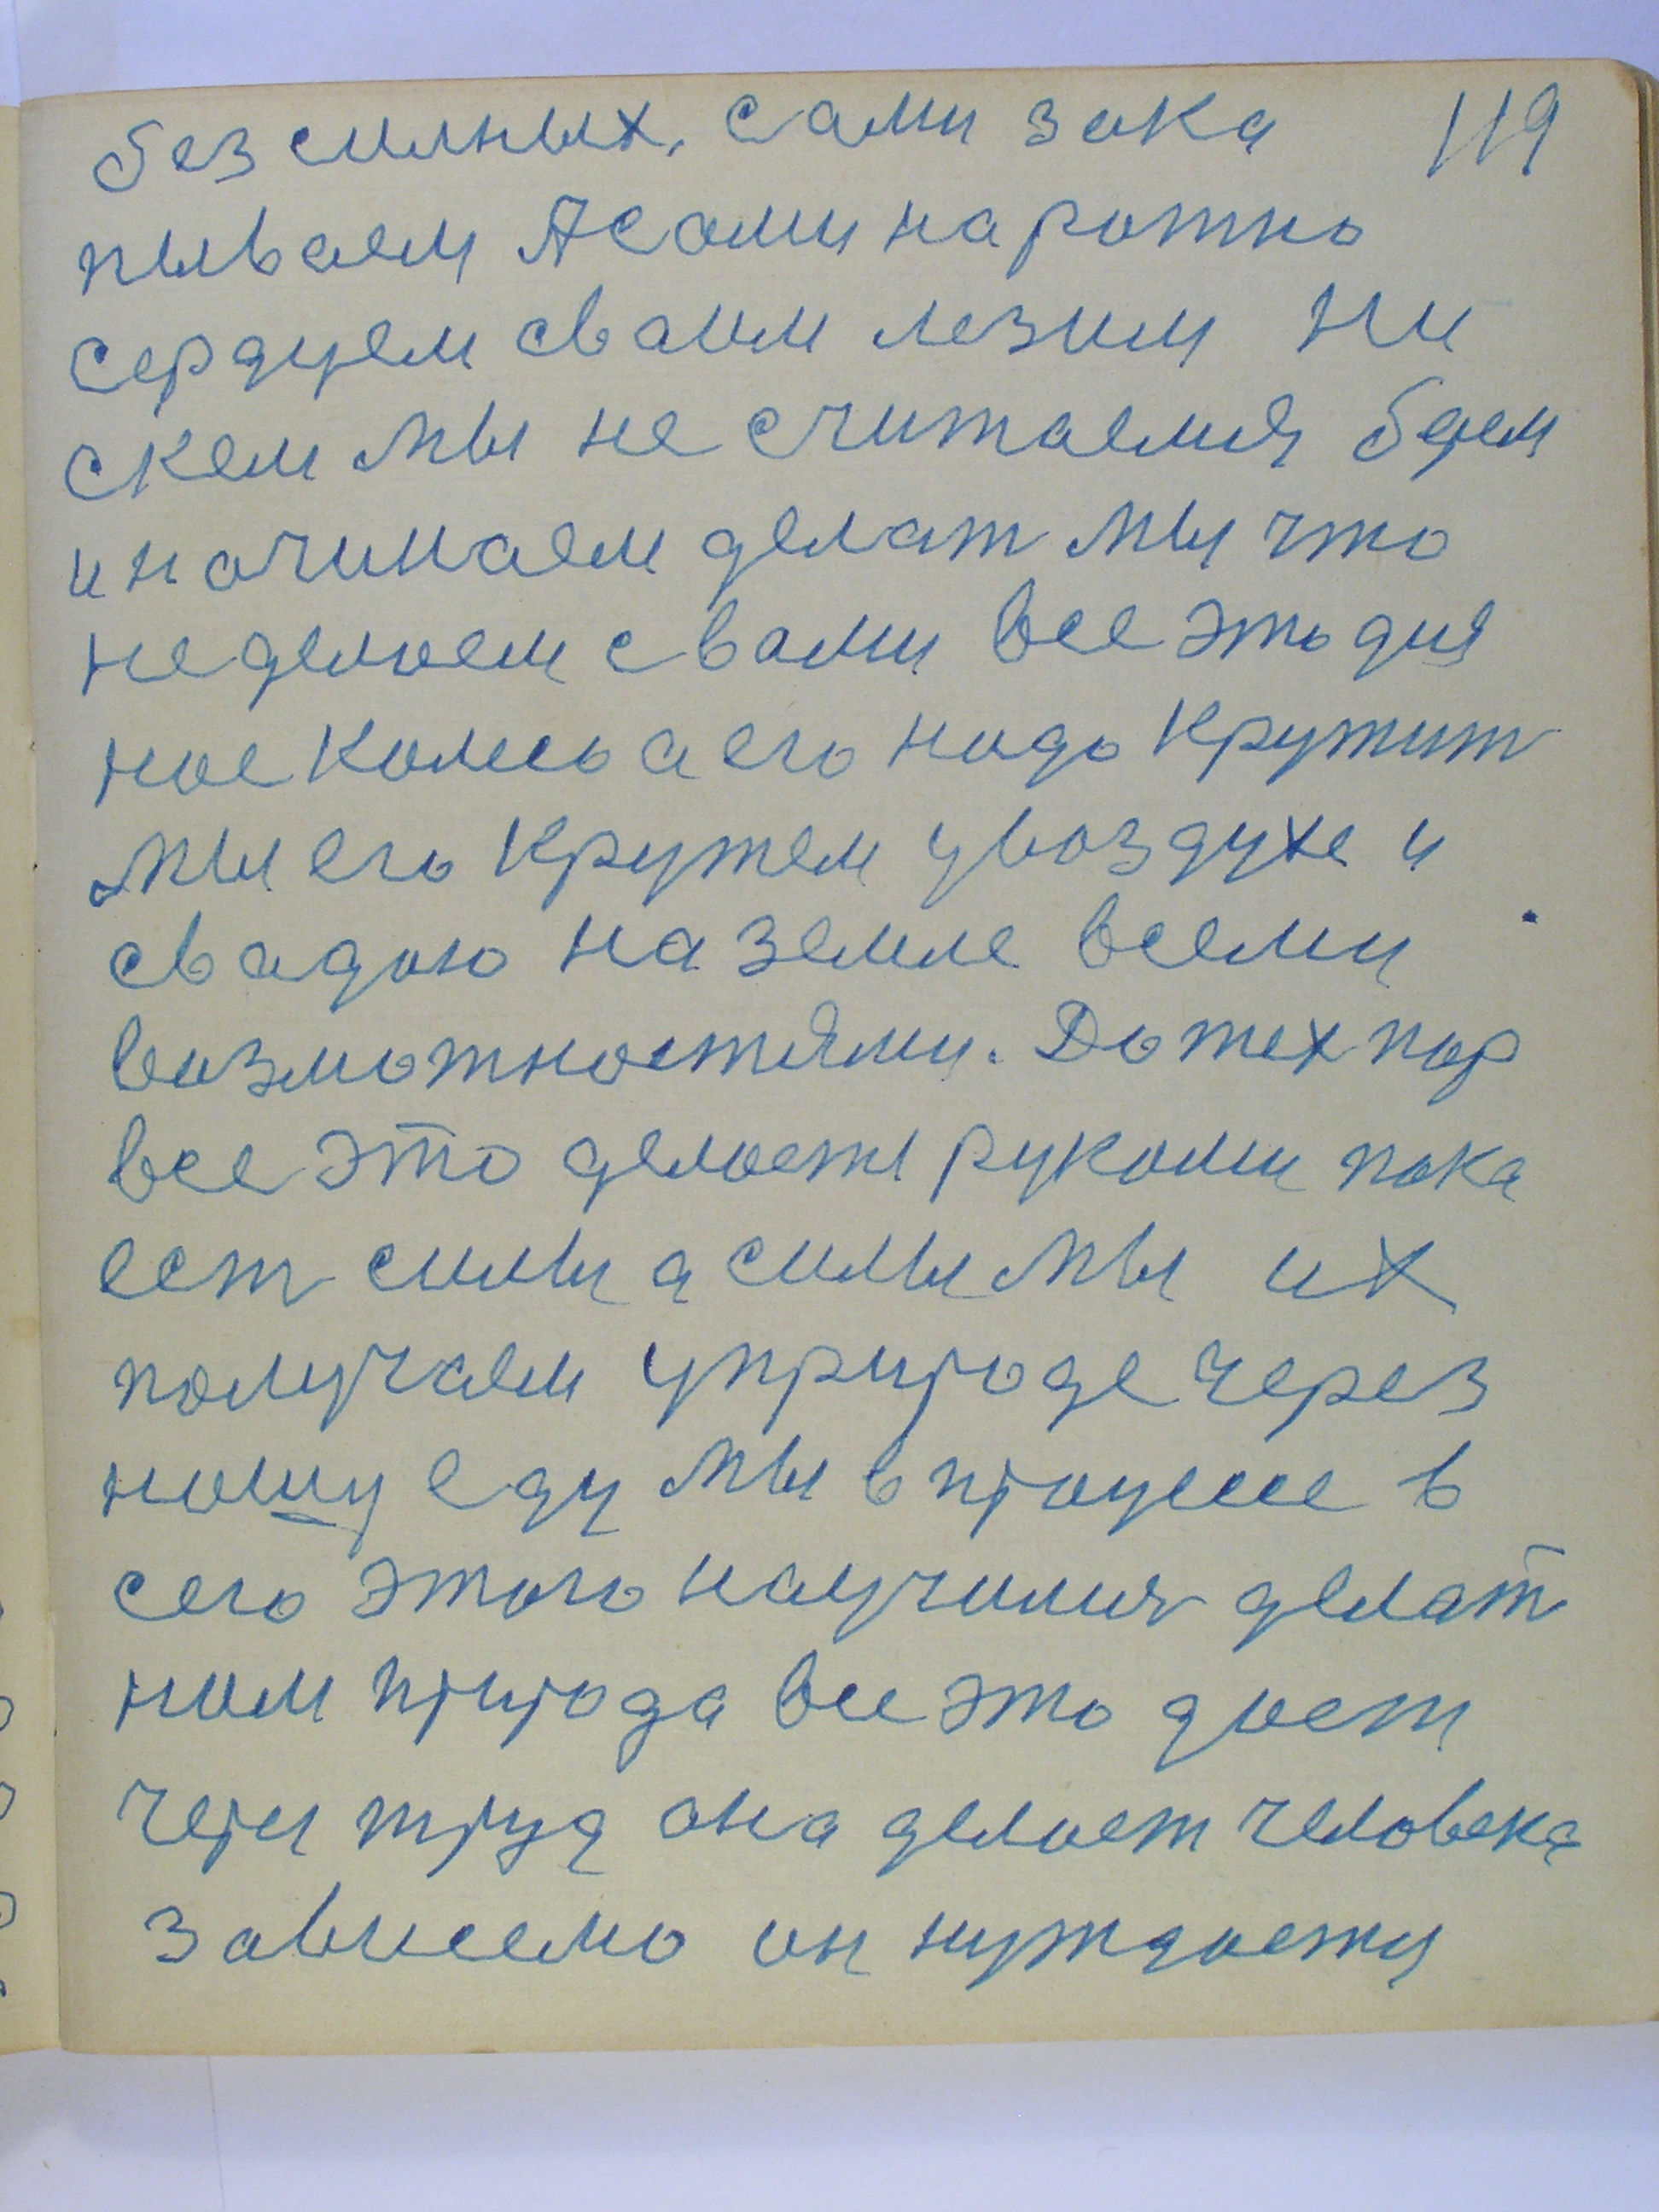 безсилных, сами зака 119
пываем А сами на ротно
сердцем сваим лезим ни
скем мы не считаемся бдем
и начинаем делат мы что
не делаем с вами все это дня
ное колесо а его надо крутит
мы его крутем у воздухе и
свадою на земле всеми
возможностями. До тех пор
все это делаетя руками пока
ест силы а силы мы их
получаем у природе через
нашу еду мы в процесе в
сего этого научился делат
нам природа все это дает
через труд она делает человека
зависемо он нуждается